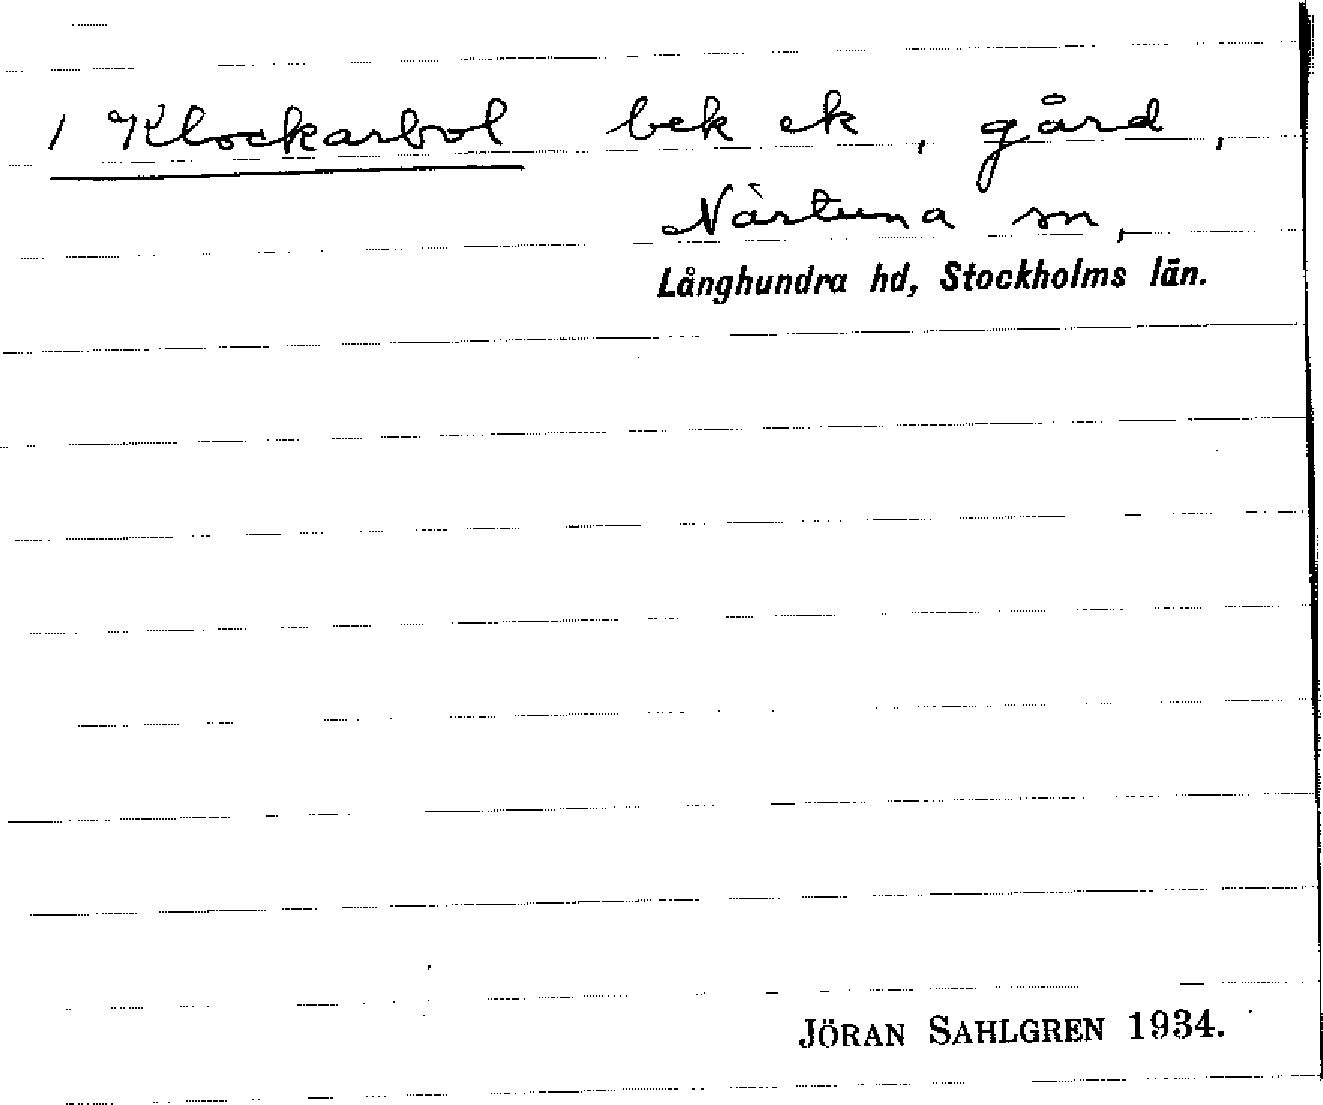 1 Klockarbol bek ek, gård,
Närtuna sn,
Långhundra hd, Stockholms län.
JÖRAN SAHLGREN 1934.